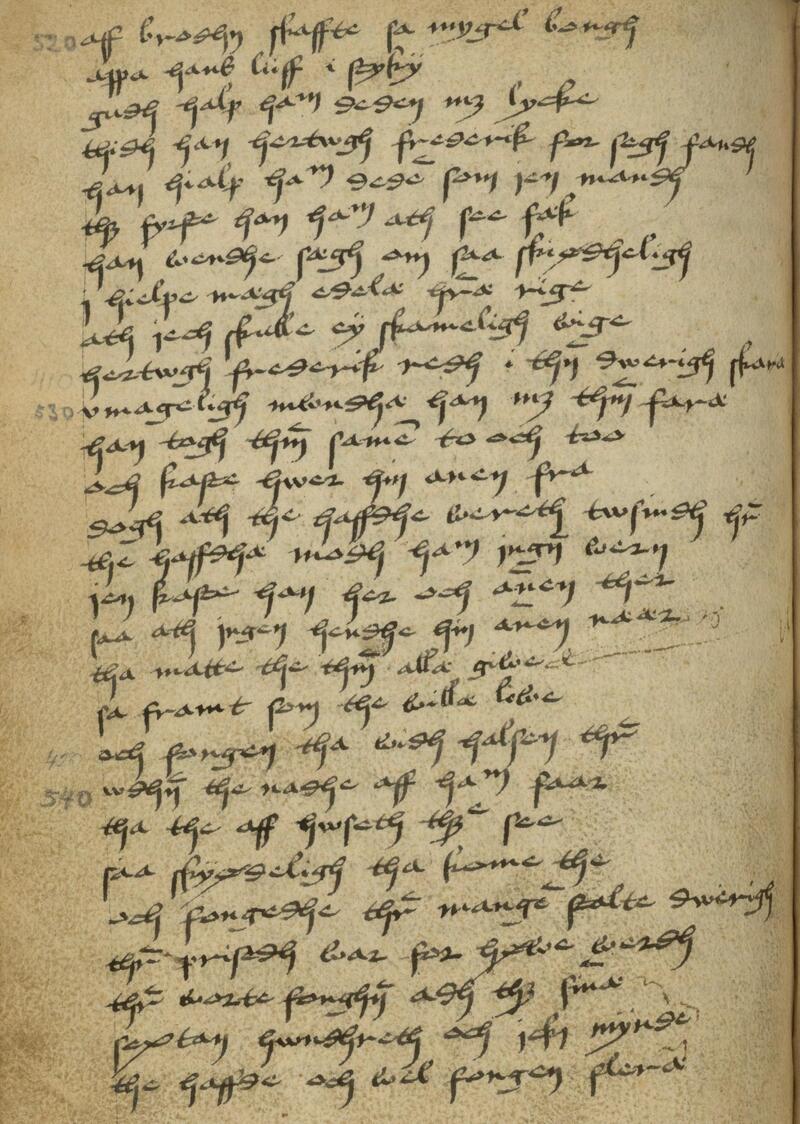 520 aff brodhn skaffte sa mygel bongh
appa hans liiff i styky
gudh halp ham deden mz lycke
thidh han hertwgh frederik for segh fandh
han hialp ham dedē som jen mandh
thz fyrste han ham ath see fæk
han wendhe sægh om saa skiødheligh
j hielpe mægh edelæ hr̄æ rige
ath jech skulle ey skameligh wige
hertwgh frederik redh i thn̄ dwerigh skara
530 vmageligh mwndhæ han mz thm̄ faræ
han togh thm̄ samē to och too
och kaste hwer hin anen fra
dogh ath the haffdhe wereth twsindh hr̄
the haffdhæ modh ham jngn̄ wern
jen kaste han her och an̄en ther
saa ath jngen hendhe hin an̄en næar
tha matte the thm̄ allæ giwe
sa framt som the willæ lewe
och fongen tha widh halsen thr̄
540 wdhn̄ the nadhe aff ham faar
tha the aff hwseth thz see
saa skyødeligh tha kome the
och fongedhe thr̄ mangē stalte dwerigh
thr̄ pristdh war for høwe werdh
thr̄ worte fonghn̄ adh thz sin̄æ
sextan hwndhreth och jckj mynde
the haffde och wel fongen fleræ